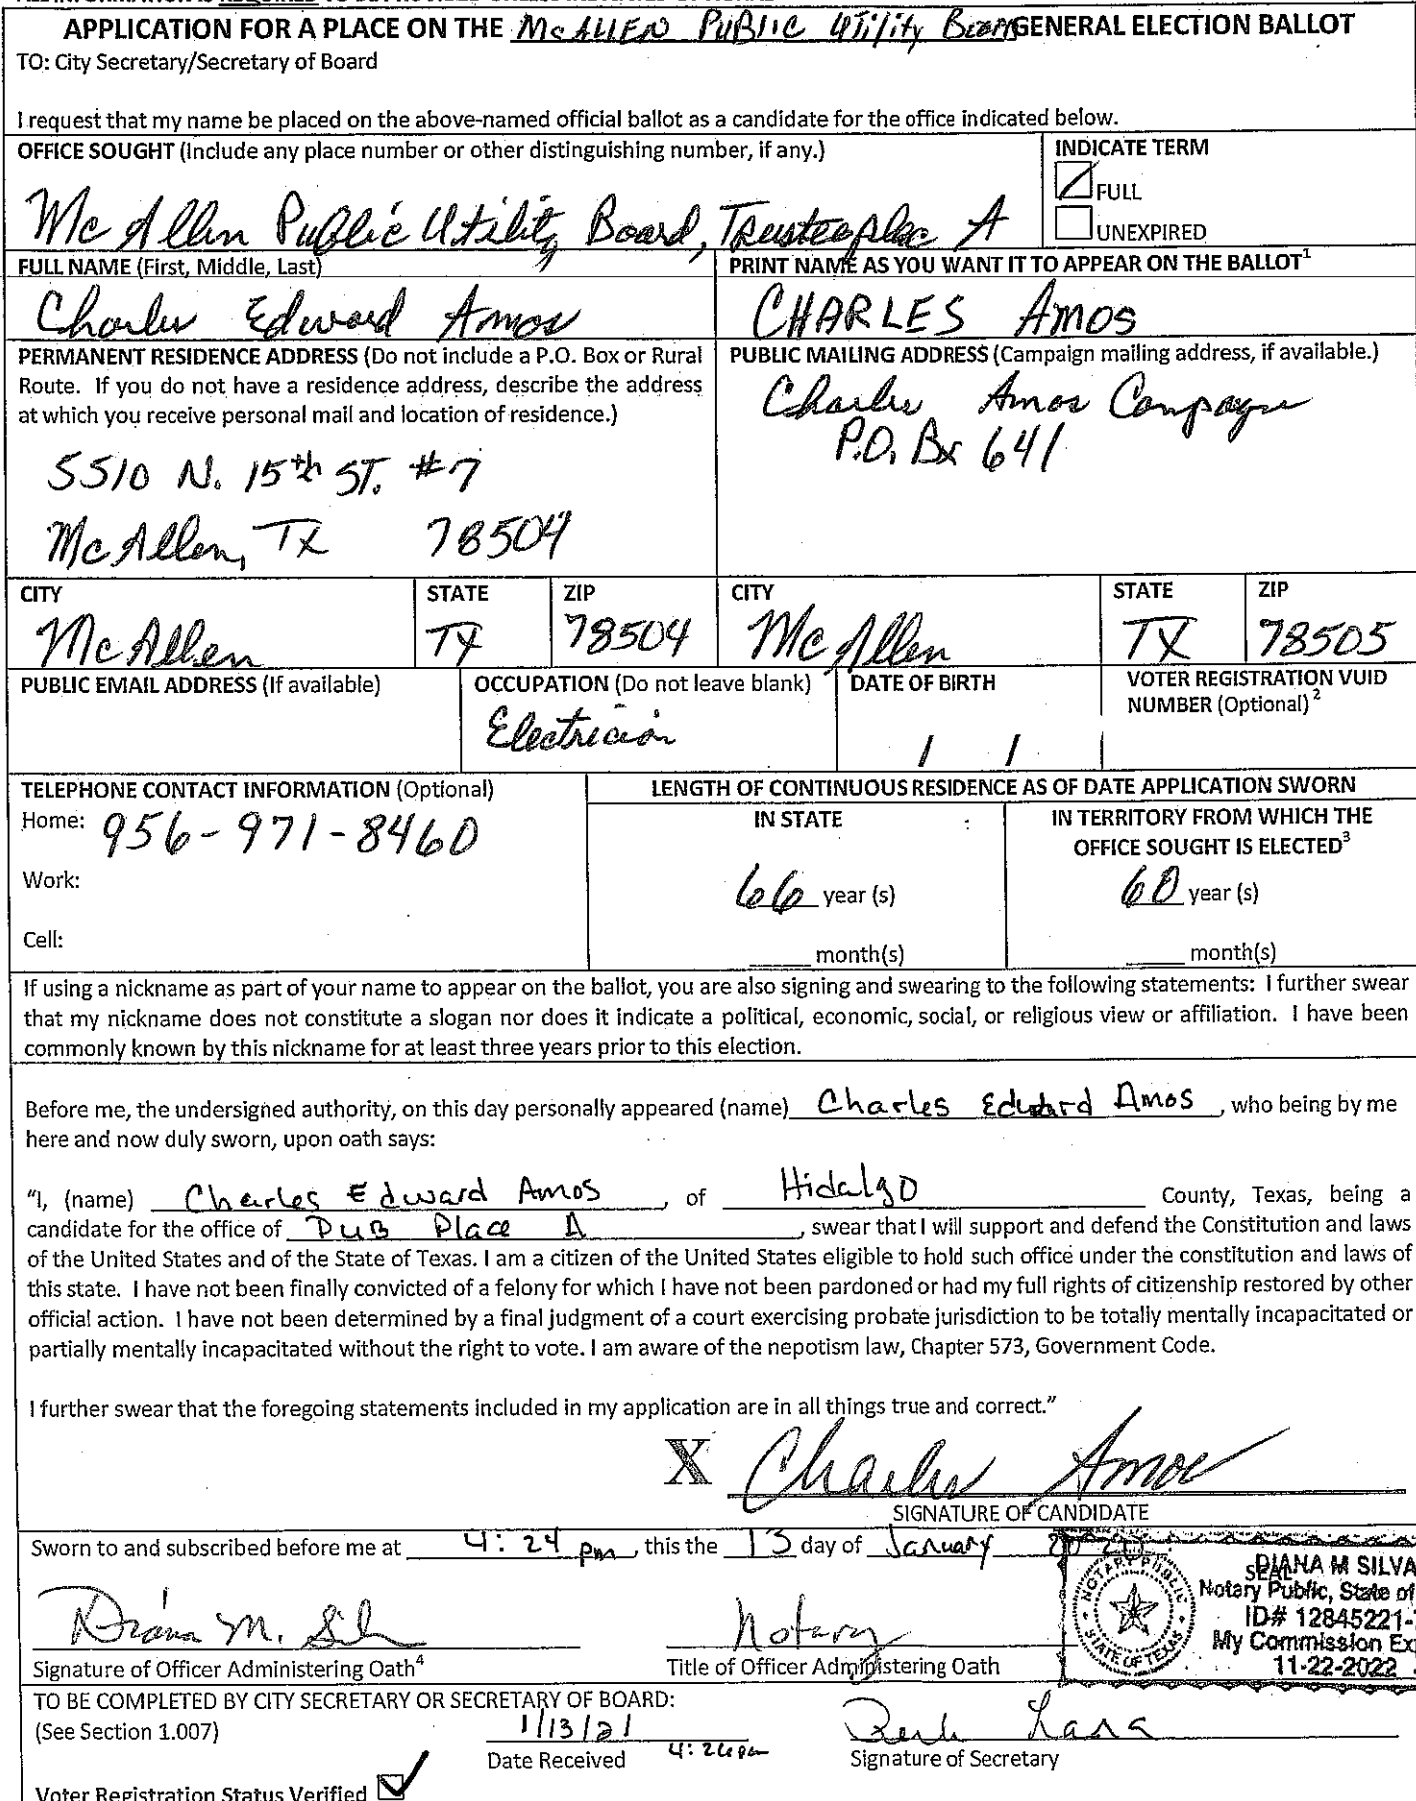 APPLICATION FOR A PLACE ON THE McALLEN PUBLIC Utility Board GENERAL ELECTION BALLOT
TO: City Secretary/Secretary of Board
I request that my name be placed on the above-named official ballot as a candidate for the office indicated below.
OFFICE SOUGHT (Include any place number or other distinguishing number, if any.)
McAllen Public Utility Board, Trustee place A
INDICATE TERM
FULL
UNEXPIRED
FULL NAME (First, Middle, Last)
Charles Edward Amos
PRINT NAME AS YOU WANT IT TO APPEAR ON THE BALLOT1
CHARLES AMOS
PERMANENT RESIDENCE ADDRESS (Do not include a P.O. Box or Rural
Route. If you do not have a residence address, describe the address
at which you receive personal mail and location of residence.)
5510 N. 15th ST. #7
McAllen, TX 78504
PUBLIC MAILING ADDRESS (Campaign mailing address, if available.)
Charles Amos Campaign
P.O. Bx 641
CITY STATE ZIP CITY STATE ZIP
McAllen TX 78504 McAllen TX 78505
PUBLIC EMAIL ADDRESS (If available)
OCCUPATION (Do not leave blank)
Electrician
DATE OF BIRTH
/ /
VOTER REGISTRATION VUID
NUMBER (Optional)2
TELEPHONE CONTACT INFORMATION (Optional)
Home: 956-971-8460
Work:
Cell:
LENGTH OF CONTINUOUS RESIDENCE AS OF DATE APPLICATION SWORN
IN STATE
66 year (s)
month(s)
IN TERRITORY FROM WHICH THE
OFFICE SOUGHT IS ELECTED3
60 year (s)
month(s)
If using a nickname as part of your name to appear on the ballot, you are also signing and swearing to the following statements: I further swear
that my nickname does not constitute a slogan nor does it indicate a political, economic, social, or religious view or affiliation. I have been
commonly known by this nickname for at least three years prior to this election.
Before me, the undersigned authority, on this day personally appeared (name) Charles Edward Amos, who being by me
here and now duly sworn, upon oath says:
"I, (name) Charles Edward Amos, of Hidalgo County, Texas, being a
candidate for the office of PUB Place A, swear that I will support and defend the Constitution and laws
of the United States and of the State of Texas. I am a citizen of the United States eligible to hold such office under the constitution and laws of
this state. I have not been finally convicted of a felony for which I have not been pardoned or had my full rights of citizenship restored by other
official action. I have not been determined by a final judgment of a court exercising probate jurisdiction to be totally mentally incapacitated or
partially mentally incapacitated without the right to vote. I am aware of the nepotism law, Chapter 573, Government Code.
I further swear that the foregoing statements included in my application are in all things true and correct."
X Charles Amos
SIGNATURE OF CANDIDATE
Sworn to and subscribed before me at 4:24 pm, this the 13 day of January
SEAL
DIANA M SILVA
Notary Public, State of
ID# 12845221-
My Commission Exp
11-22-2022
NOTARY PUBLIC
STATE OF TEXAS
Diana M. Sil
Signature of Officer Administering Oath4
Notary
Title of Officer Administering Oath
TO BE COMPLETED BY CITY SECRETARY OR SECRETARY OF BOARD:
(See Section 1.007)
1/13/21
Date Received 4:26pm
Lara
Signature of Secretary
Voter Registration Status Verified